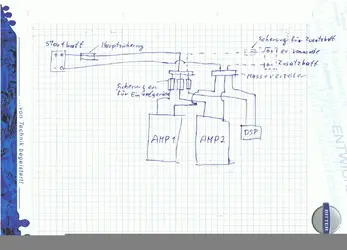 Startbatt
Hauptsicherung
Sicherung für Zusatzbatt
Zusatzbatt
Masseverteiler
Sicherungen
für Einzelgeräte
AMP1
AMP2
DSP
von Technik begeistert!
ENTWI